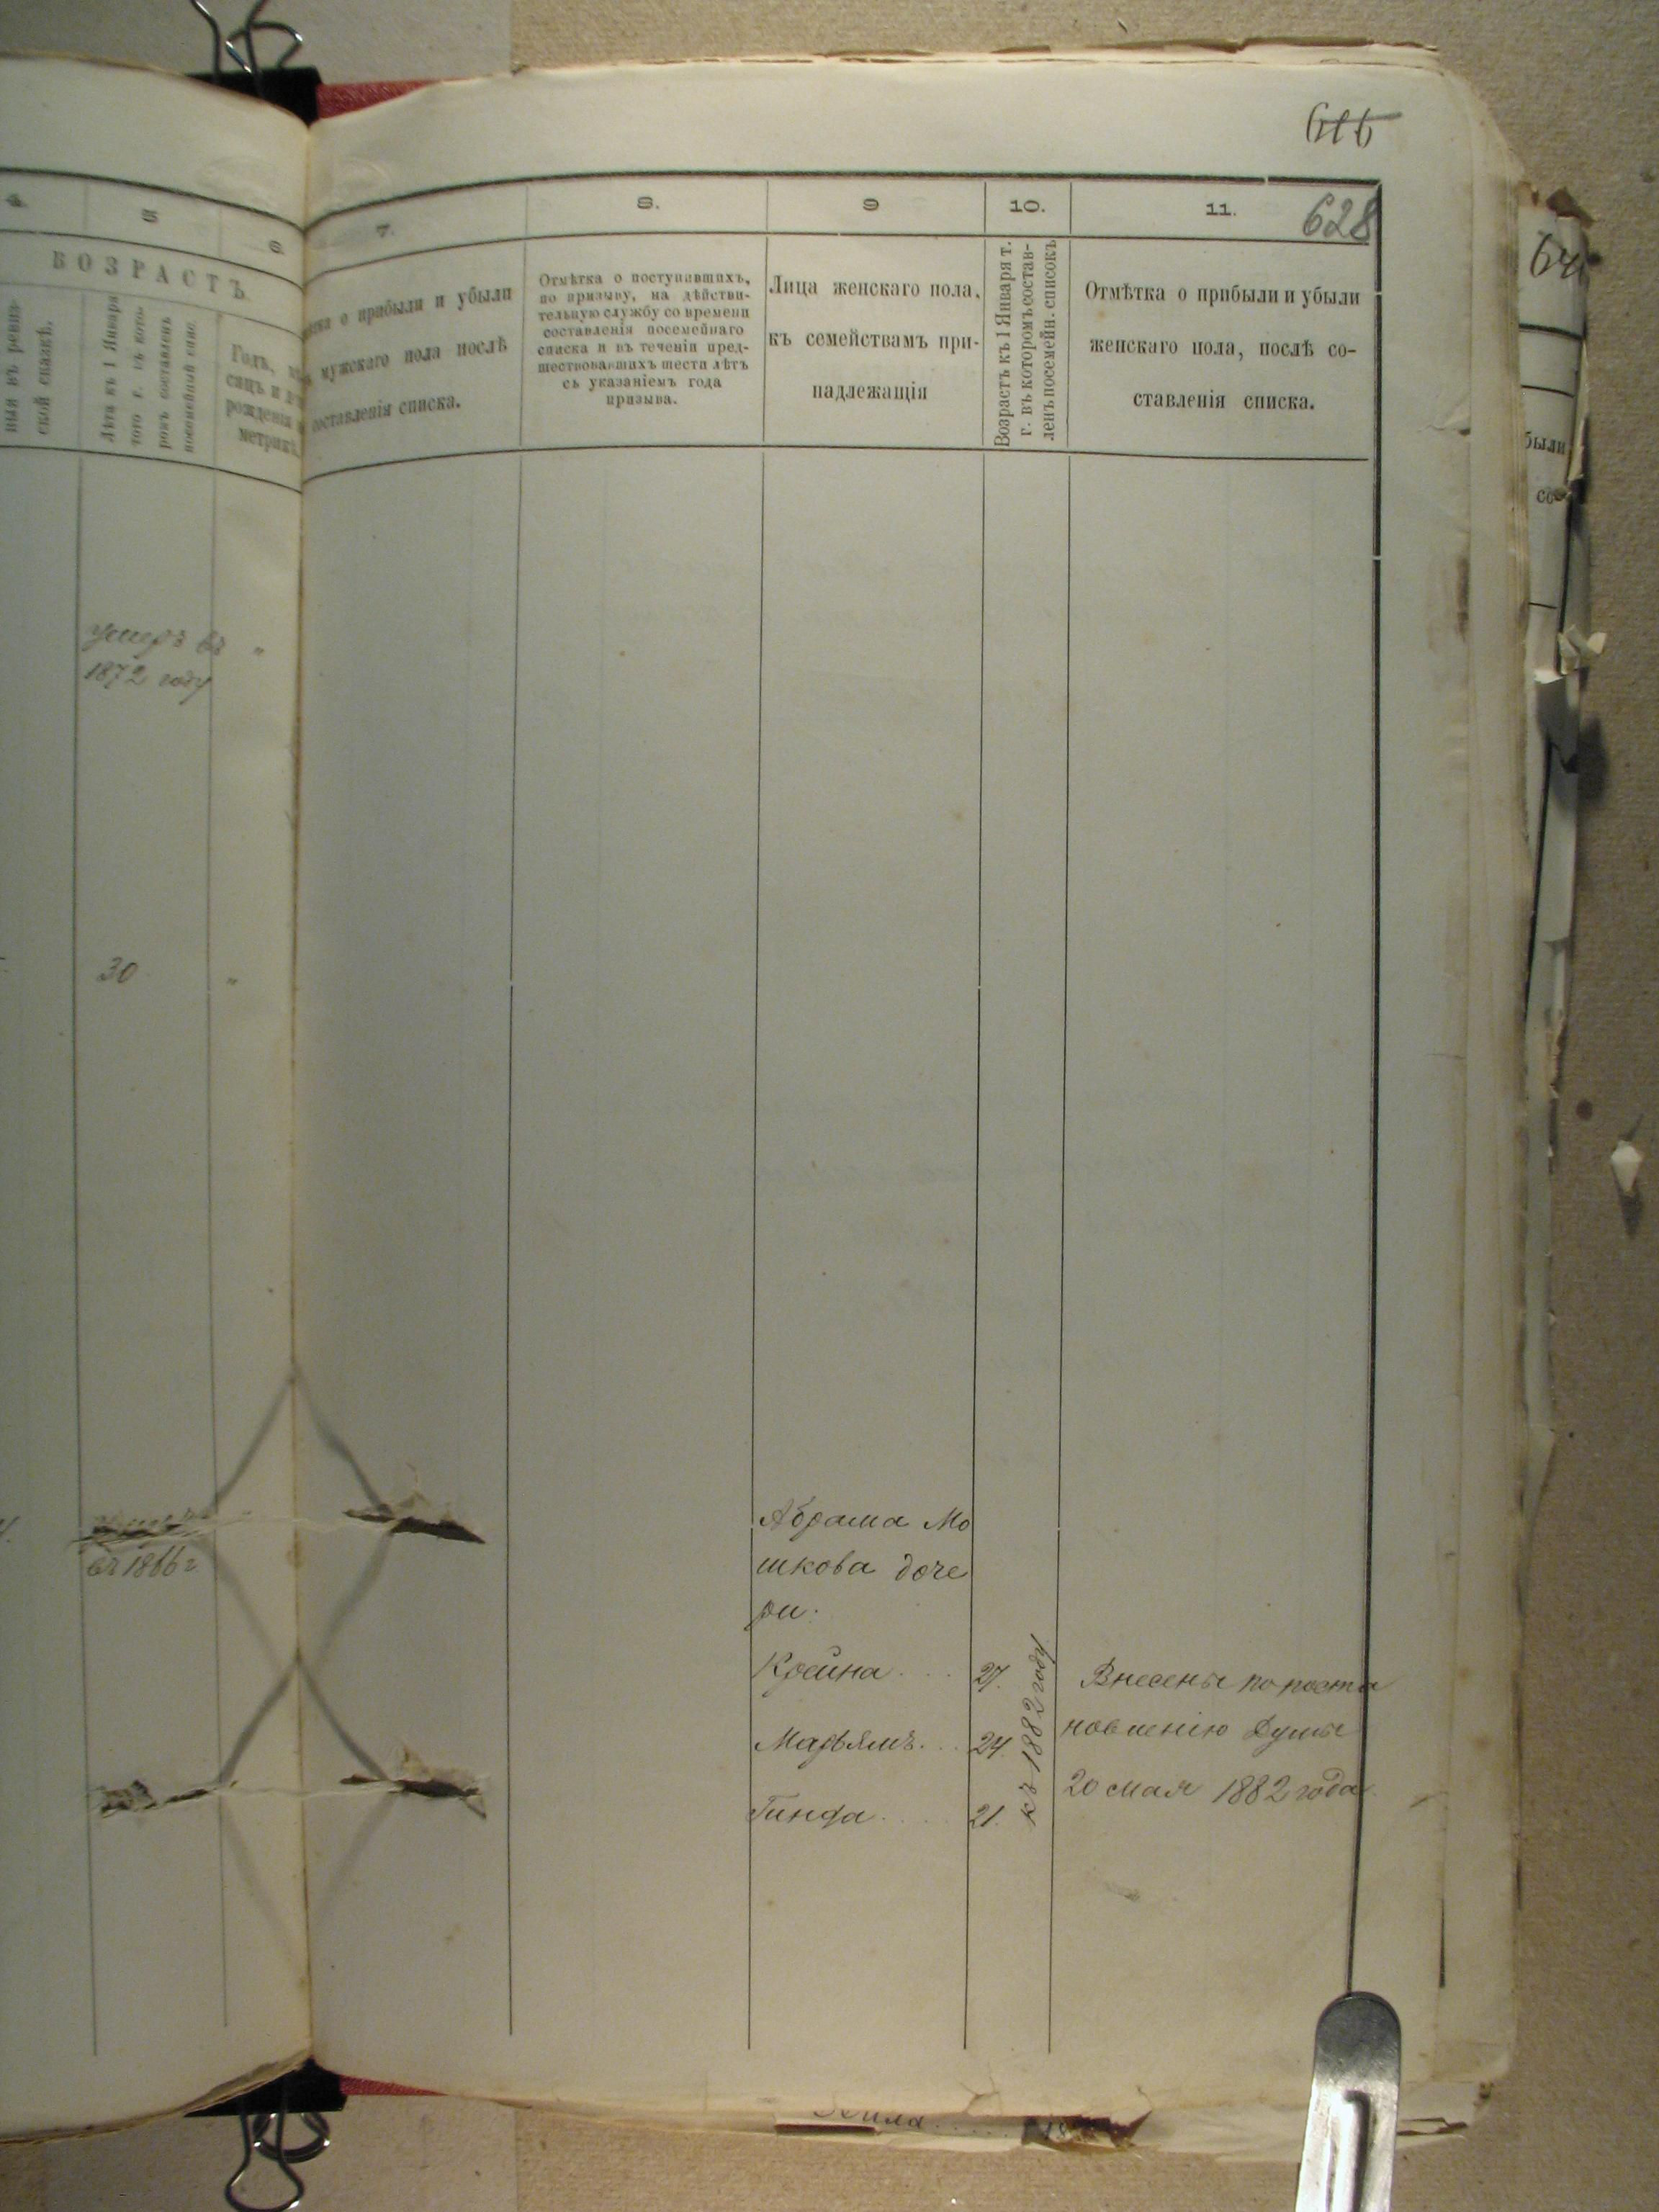 616
628
4.
5
6
7.
8.
9
10.
11.
ВОЗРАСТЪ
ныя въ ревиз-
ской сказкѣ.
Лѣта къ 1 Января
того г. въ кото-
ромъ составленъ
посемейный списо
Годъ,
рожденія
метрик
о прибыли и убыли
мужскаго пола послѣ
составленія списка.
Отмѣтка о поступавшихъ,
по призыву, на дѣйстви-
тельную службу со времени
составленія посемейнаго
списка и въ теченіи пред-
шествовавшихъ шести лѣтъ
съ указаніемъ года
призыва.
Лица женскаго пола,
къ семействамъ при-
надлежащія
Возрастъ къ 1 Января т.
г. въ которомъ состав-
ленъ посемейн. списокъ
Отмѣтка о прибыли и убыли
женскаго пола, послѣ со-
ставленія списка.
были
умеръ въ "
1872 году
30 "
въ 1866 г
Абрама Мо
шкова доче
ри:
Крейна . . . 27.
Марьямъ. . . 24.
Гинда . . . . 21.
къ 1882 году
Внесены по поста
новленію Думы
20 мая 1882 года.